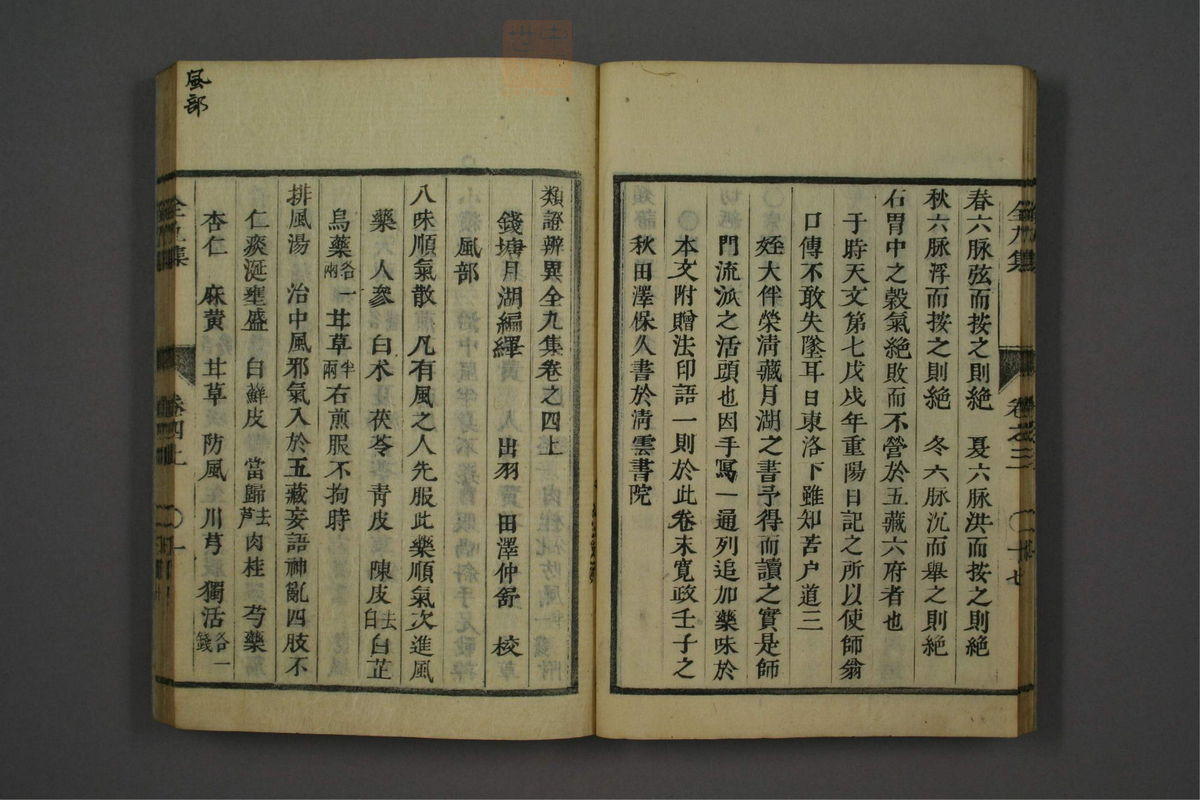 春六脉弦而按之則絶　夏六脉洪而按之則絶
秋六脉浮而按之則絶　冬六脉沉而舉之則絶
右胃中之穀氣絶敗而不營於五藏六府者也
于時天文第七戊戌年重陽日記之所以使師翁
口傳不敢失墜耳日東洛下雖知苦户道三
姪大伴榮清藏月湖之書予得而讀之實是師
門流派之活頭也因手冩一通列追加藥味於
本文附贈法印語一則於此卷末寛政壬子之
秋田澤保久書於清雲書院
全九集　卷之三　二十七
類證辨異全九集卷之四上
錢塘月湖編繹　出羽　田澤仲舒　校
風部
八味順氣散　凡有風之人先服此藥順氣次進風
藥　人參　白术　茯苓　青皮　陳皮去白　白芷
烏藥各一兩　甘草半兩　右煎服不拘時
排風湯　治中風邪氣入於五藏妄語神亂四肢不
仁痰涎壅盛　白鮮皮　當歸去芦　肉桂　芍藥
杏仁　麻黄　甘草　防風　川芎　獨活各一錢
卷四上　一
風部